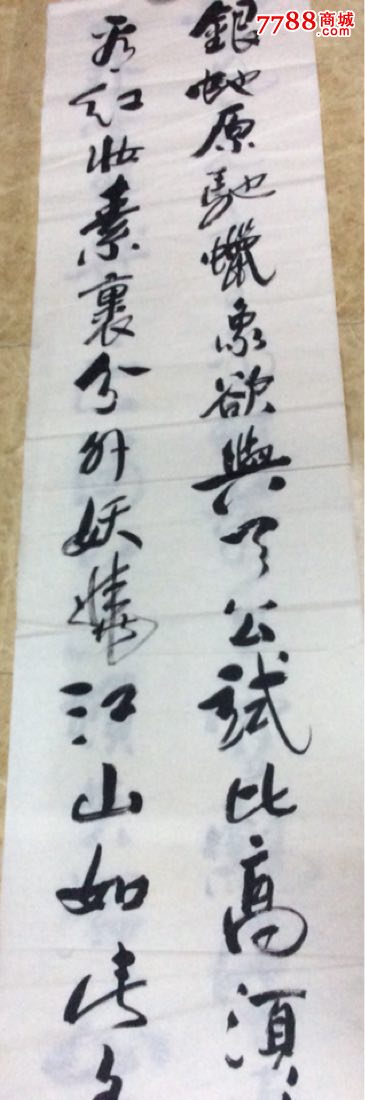 7788商城
銀蛇原馳蠟象欲與天公試比高須
看紅妝素裹分外妖嬈江山如此